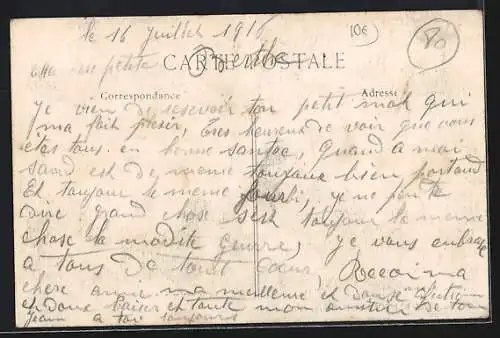 le 16 Juillet 1916
10€
80
ma petite Berthe
CARTE POSTALE
Correspondance
Adresse
Je vien de resevoir ton petit mot qui
ma fait plésir, très heureux de voir que vous
etes tous en bonne santée, quand a moi
santé est de meme toujour bien portand
Et toujour le meme fourbi, je ne peu te
dire grand chose sest toujour la meme
chose la modite Guerre, je vous enbrase
a tous de tout Cœur, Recoi ma
chere amie ma meilleure et douse afection
et doux Baiser et toute mon amitiée de ton
Jean a toi toujours